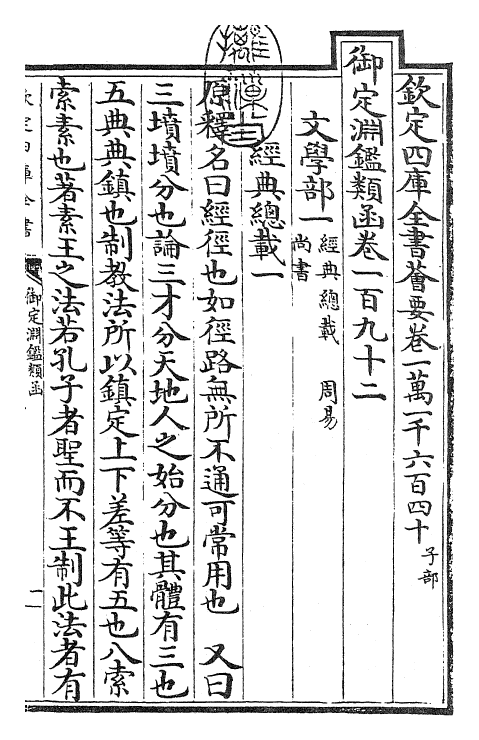 欽定四庫全書薈要卷一萬一千六百四十子部
御定淵鑑類函卷一百九十二
文學部一經典總載　周易
尚書
經典總載一
原釋名曰經徑也如徑路無所不通可常用也　又曰
三墳墳分也論三才分天地人之始分也其體有三也
五典典鎮也制教法所以鎮定上下差等有五也八索
索素也著素王之法若孔子者聖而不王制此法者有
欽定四庫全書
御定淵鑑類函